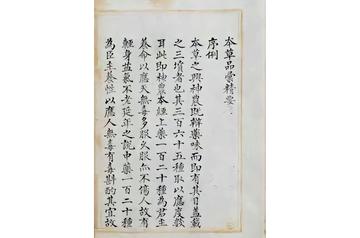 本草品彙精要
序例
本草之興神農既辨藥味而即有其目蓋載
之三墳者也其三百六十五種取以應度數
耳此即神農本經上藥一百二十種為君主
養命以應天無毒多服久服亦不傷人故有
輕身益氣不老延年之說中藥一百二十種
為臣主養性以應人無毒有毒斟酌其宜故